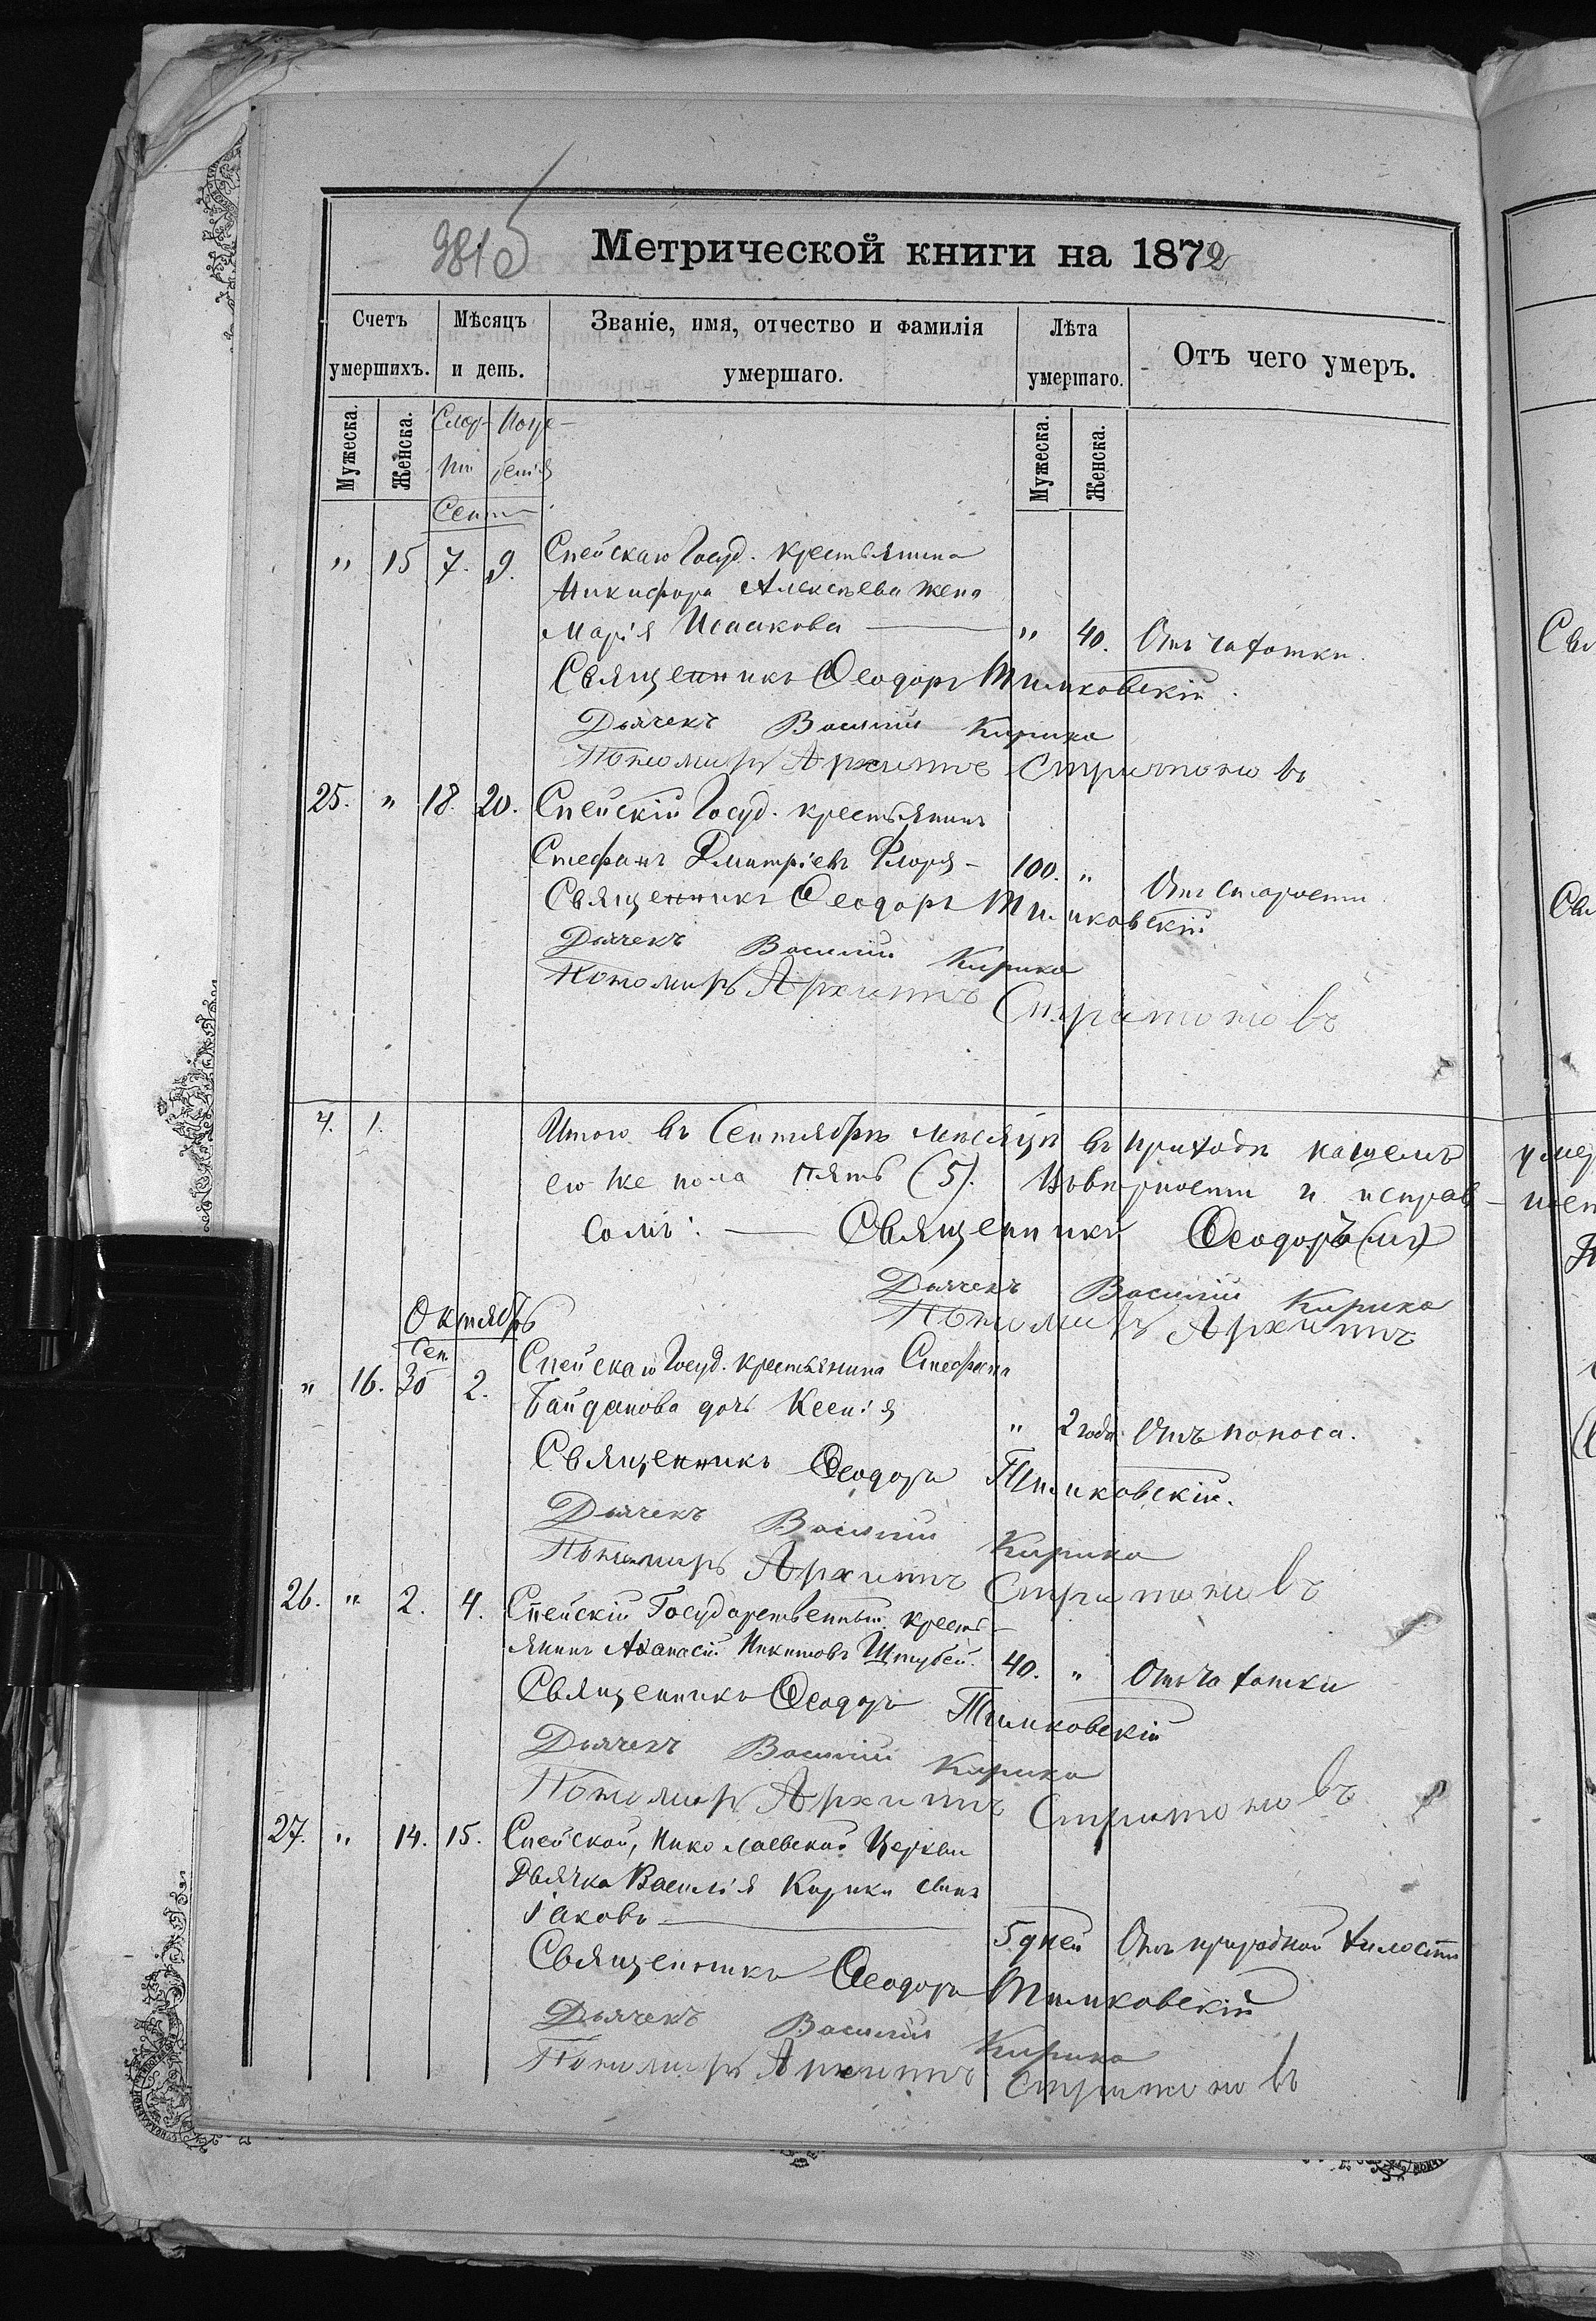 981 б
Метрической книги на 1872
Счетъ умершихъ.
Мѣсяцъ и день.
Званіе, имя, отчество и фамилія умершаго.
Лѣта умершаго.
Отъ чего умеръ.
Мужеска. Женска. Смер- Погре-
ти бенія
Мужеска. Женска.
Сент
" 15 7. 9. Спейскаго Госуд. крестьянина
Никифора Алексѣева жена
Марія Исаакова " 40. Отъ чахотки.
Священникъ Ѳеодоръ Тимковскій
Дьячекъ Василій Кирика
Пономарь Архипъ Стратоновъ
25. " 18. 20. Спейскій Госуд. крестьянинъ
Стефанъ Дмитріевъ Флоря- 100. " Отъ старости
Священникъ Ѳеодоръ Тимковскій
Дьячекъ Василій Кирика
Пономарь Архипъ Стратоновъ
4. 1. Итого въ Сентябрѣ мѣсяцѣ въ приходѣ нашемъ
ею же пола пять (5). Въ вѣрности и исправ-
Сомъ: Священникъ Ѳеодоръ
Дьячекъ Василій Кирика
Пономарь Архипъ
Октябрь
Сен.
" 16. 30 2. Спейскаго Госуд. крестьянина Стефана
Байданова дочь Ксенія " 2 года Отъ поноса.
Священникъ Ѳеодоръ Тимковскій.
Дьячекъ Василій Кирика
Пономарь Архипъ Стратоновъ
26. " 2. 4. Спейскій Государственный кресть-
янинъ Аѳанасій Никитовъ Штубей. 40. " Отъ чахотки
Священникъ Ѳеодоръ Тимковскій
Дьячекъ Василій Кирика
Пономарь Архипъ Стратоновъ
27. " 14. 15. Спейской, Николаевской Церкви
Дьячка Василія Кирики сынъ
Іаковъ 5 дней Отъ природной хилости
Священникъ Ѳеодоръ Тимковскій
Дьячекъ Василій Кирика
Пономарь Архипъ Стратоновъ